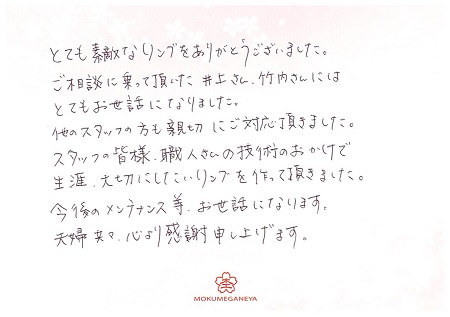 とても素敵なリングをありがとうございました。
ご相談に乗って頂いた井上さん、竹内さんには
とてもお世話になりました。
他のスタッフの方も親切にご対応頂きました。
スタッフの皆様、職人さんの技術のおかげで
生涯、大切にしたいリングを作って頂きました。
今後のメンテナンス等、お世話になります。
夫婦共々、心より感謝申し上げます。
MOKUMEGANEYA